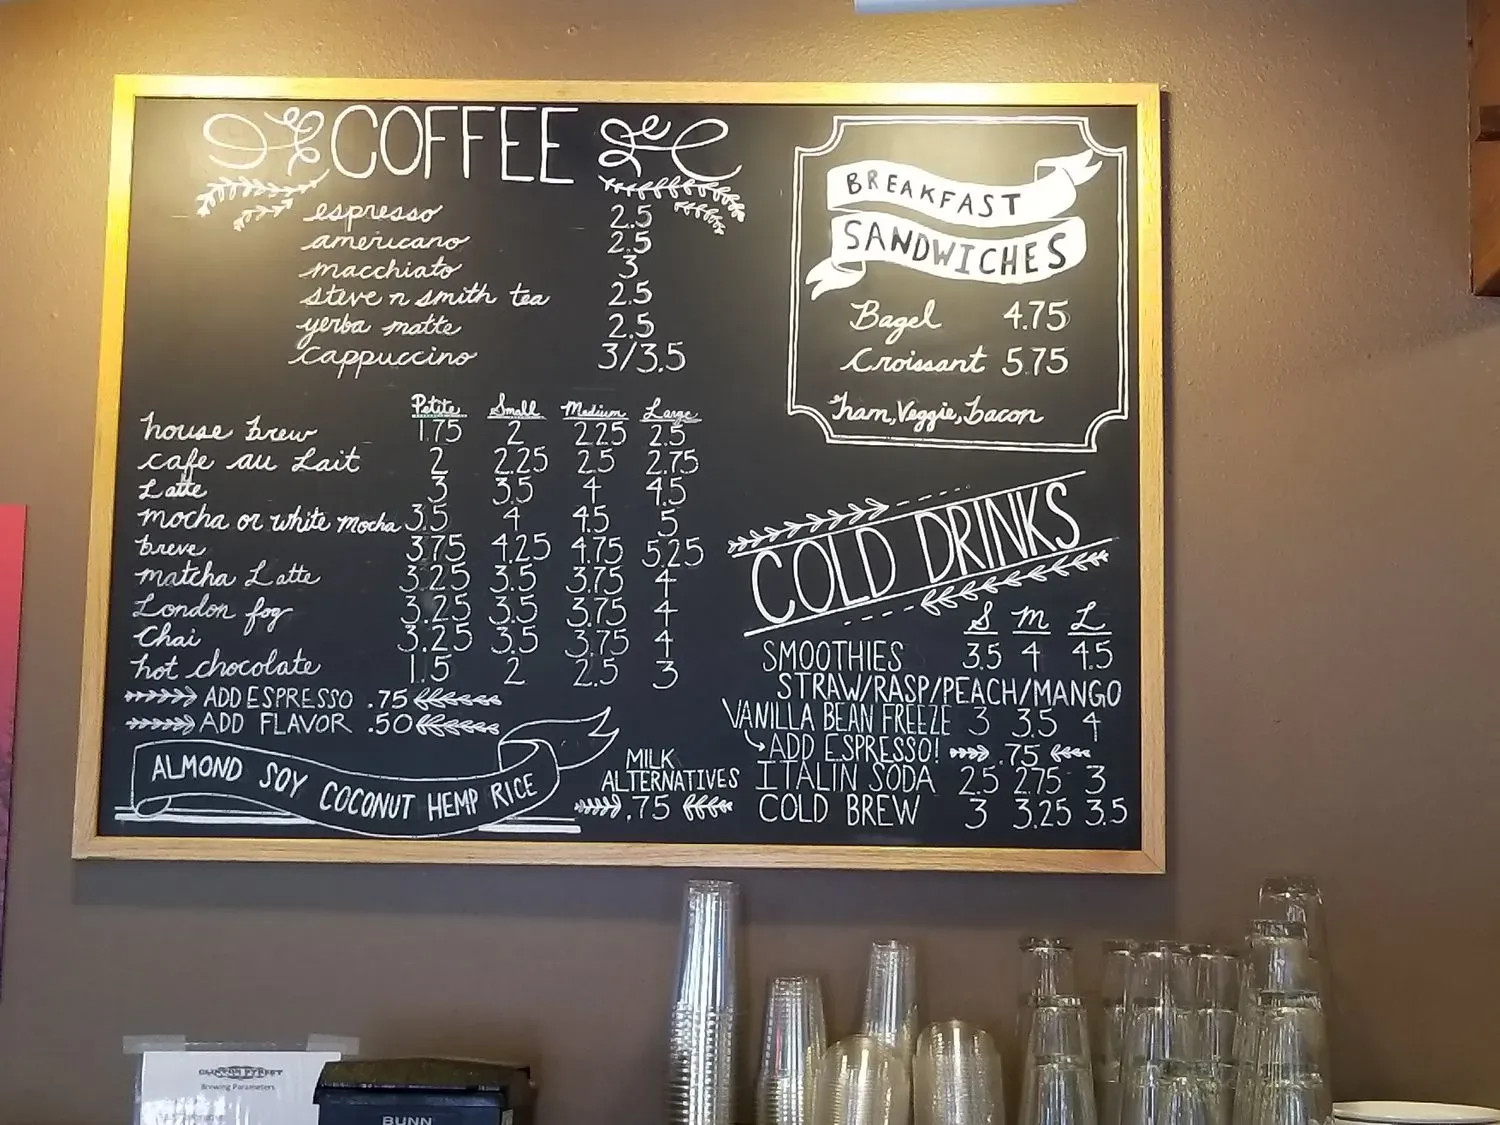 COFFEE
espresso 2.5
americano 2.5
macchiato 3
steve n smith tea 2.5
yerba matte 2.5
cappuccino 3/3.5
Petite Small Medium Large
house brew 1.75 2 2.25 2.5
cafe au Lait 2 2.25 2.5 2.75
Latte 3 3.5 4 4.5
mocha or white mocha 3.5 4 4.5 5
breve 3.75 4.25 4.75 5.25
matcha Latte 3.25 3.5 3.75 4
London fog 3.25 3.5 3.75 4
Chai 3.25 3.5 3.75 4
hot chocolate 1.5 2 2.5 3
ADD ESPRESSO .75
ADD FLAVOR .50
ALMOND SOY COCONUT HEMP RICE
MILK
ALTERNATIVES
.75
BREAKFAST
SANDWICHES
Bagel 4.75
Croissant 5.75
ham, Veggie, bacon
COLD DRINKS
S M L
SMOOTHIES 3.5 4 4.5
STRAW/RASP/PEACH/MANGO
VANILLA BEAN FREEZE 3 3.5 4
ADD ESPRESSO! .75
ITALIN SODA 2.5 2.75 3
COLD BREW 3 3.25 3.5
CLINTON STREET
Brewing Parameters
BUNN